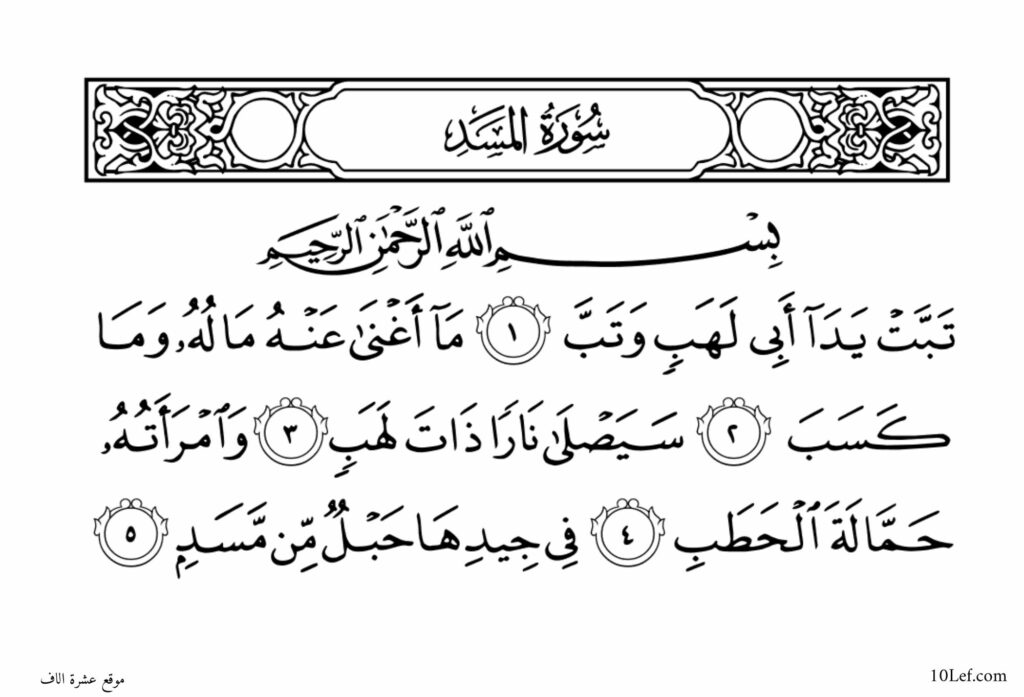 سُورَةُ المَسَدِ
بِسْمِ ٱللَّهِ ٱلرَّحْمَٰنِ ٱلرَّحِيمِ
تَبَّتْ يَدَآ أَبِى لَهَبٍ وَتَبَّ ١ مَآ أَغْنَىٰ عَنْهُ مَالُهُۥ وَمَا
كَسَبَ ٢ سَيَصْلَىٰ نَارًا ذَاتَ لَهَبٍ ٣ وَٱمْرَأَتُهُۥ
حَمَّالَةَ ٱلْحَطَبِ ٤ فِى جِيدِهَا حَبْلٌ مِّن مَّسَدٍۭ ٥
موقع عشرة الاف
10Lef.com